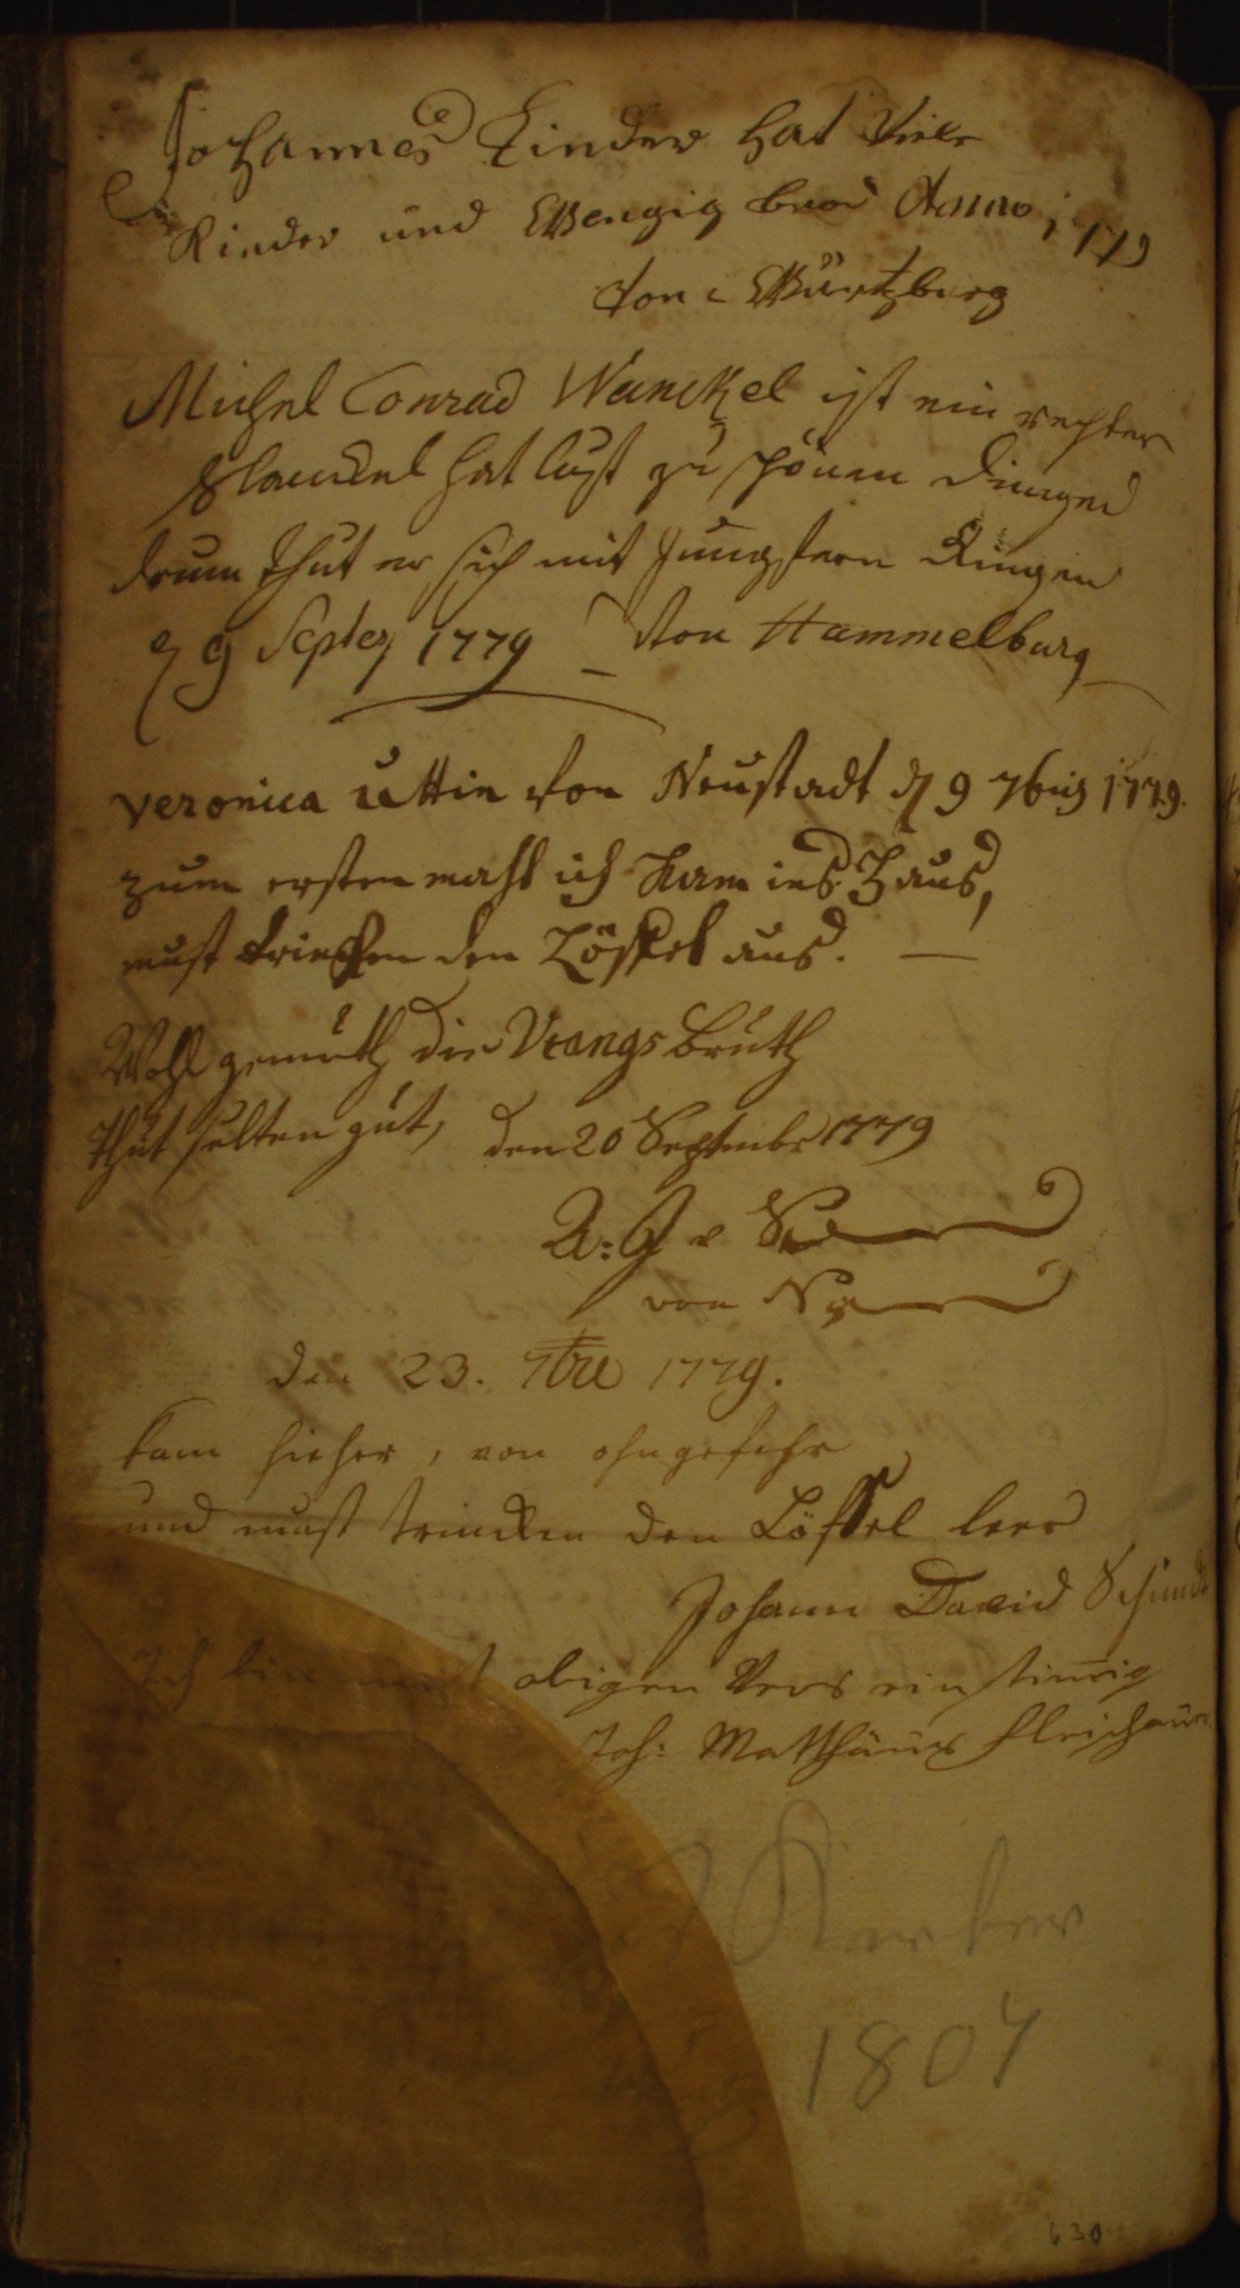 Johannes Linder hat Viele
Kinder und Wengig brod Anno 1779
Von Würtzburg
Michel Conrad Wanckel ist ein rechter
hat lust zu schönen Dingen
drum thut er sich mit Jungfern Ringen
9 Septer 1779 Von Hammelburg
Veronica Uttin von Neustadt d 9 7bris 1779.
zum ersten mahl ich kam ins Haus,
must trincken den Löffel aus. —
Wohl gemuth die
thut selten gut, den 20 Septembr 1779
von
den 23. 7bre 1779.
kam hieher, von ohngefehr
und must trincken den Löffel leer
Johann David Schmidt
Ich bin mit obigen Vers einstimig
Joh: Matthäus Fleischauer
1804
630